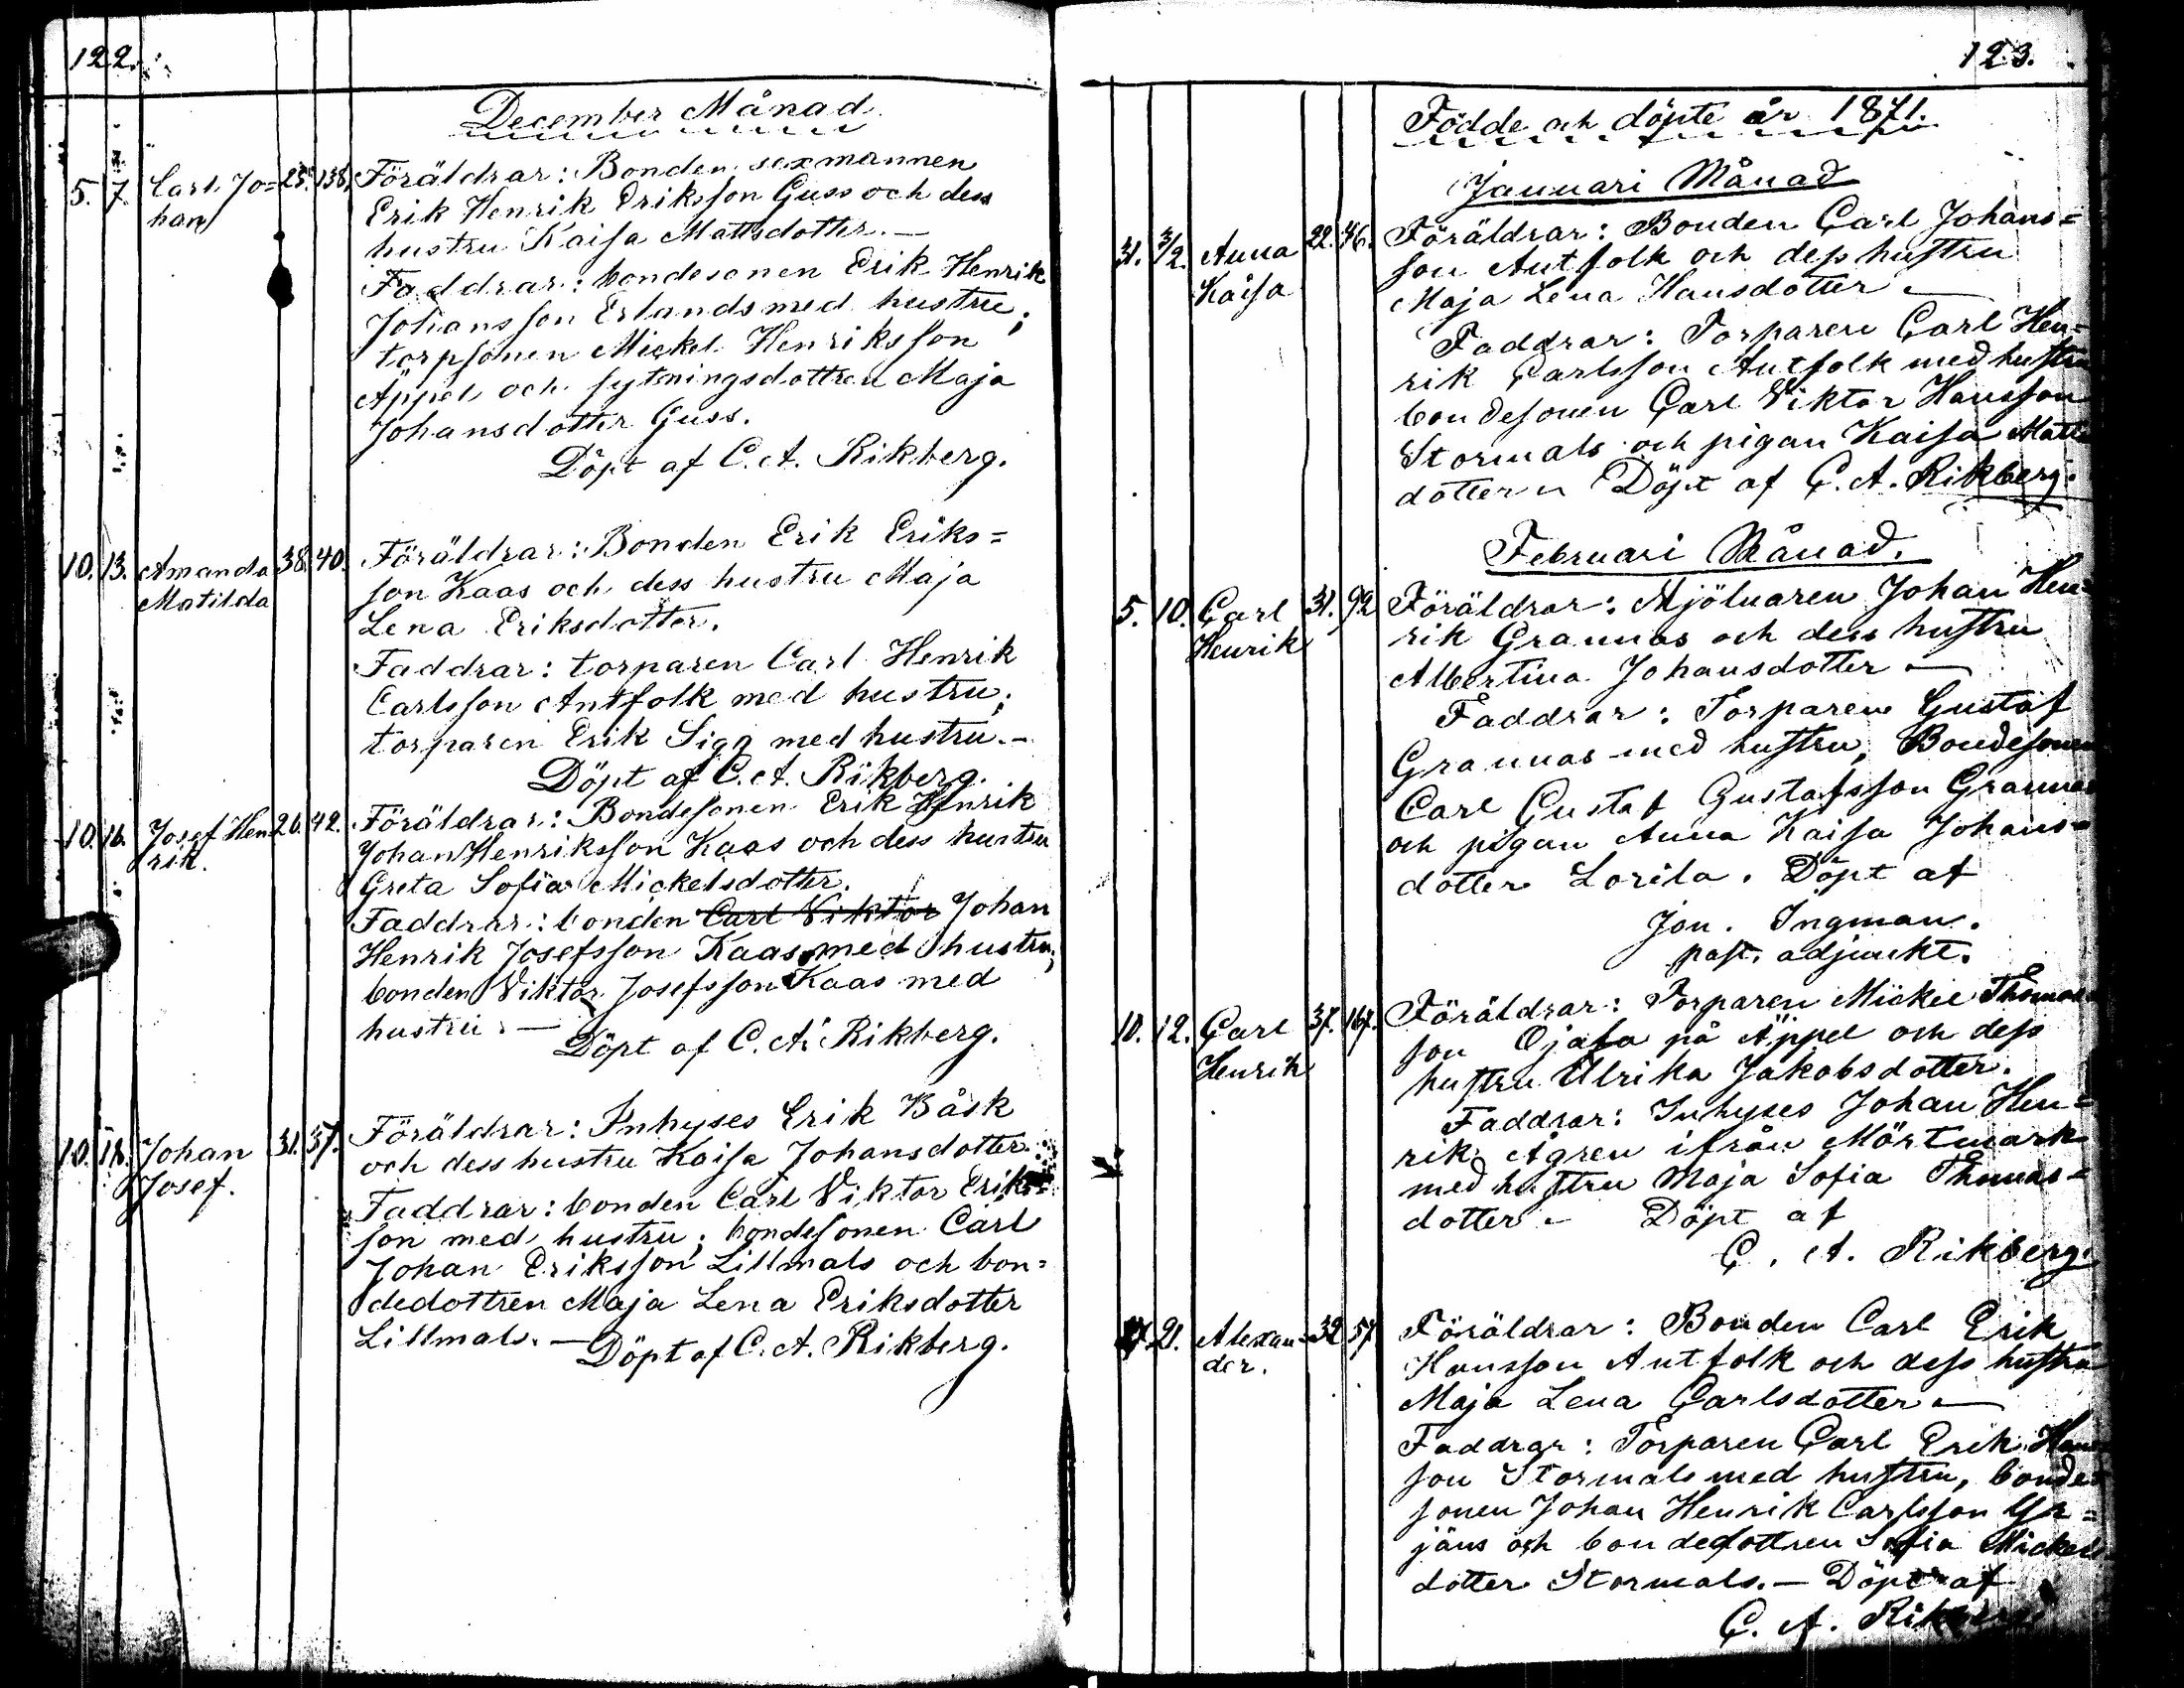 122.
December Månad
5. 7. Carl Jo= 25. 138. Föräldrar: Bonden sexmannen
han Erik Henrik Eriksson Guss och dess
hustru Kaisa Mattsdotter. —
Faddrar: bondesonen Erik Henrik
Johansson Erlands med hustru;
torpsonen Mickel Henriksson
Äppel och sytningsdottren Maja
Johansdotter Guss.
Döpt af C. A. Rikberg.
10. 13. Amanda 38. 40. Föräldrar: Bonden Erik Eriks=
Matilda son Kaas och dess hustru Maja
Lena Eriksdotter.
Faddrar: torparen Carl Henrik
Carlsson Antfolk med hustru;
torparen Erik Sigg med hustru. —
Döpt af C. A. Rikberg.
10. 16. Josef Hen 26. 42. Föräldrar: Bondesonen Erik Henrik
rik. Johan Henriksson Kaas och dess hustru
Greta Sofia Mickelsdotter.
Faddrar: bonden Carl Viktor Johan
Henrik Josefsson Kaas med hustru;
bonden Viktor Josefsson Kaas med
hustru. —
Döpt af C. A. Rikberg.
10. 18. Johan 31. 37. Föräldrar: Inhyses Erik Båsk
Josef. och dess hustru Kaisa Johansdotter.
Faddrar: bonden Carl Viktor Eriks=
son med hustru; bondesonen Carl
Johan Eriksson Lillmals och bon=
dedottren Maja Lena Eriksdotter
Lillmals. —
Döpt af C. A. Rikberg.
123.
Födde och döpte år 1871.
Januari Månad
31. 3/2. Anna 22. 46. Föräldrar: Bonden Carl Johans=
Kaisa son Antfolk och dess hustru
Maja Lena Hansdotter —
Faddrar: Torparen Carl Hen=
rik Carlsson Antfolk med hustru
bondesonen Carl Viktor Hansson
Stormals och pigan Kaisa Matts
dotter Döpt af C. A. Rikberg.
Februari Månad.
5. 10. Carl 31. 92 Föräldrar: Mjölnaren Johan Hen=
Henrik rik Grannas och dess hustru
Albertina Johansdotter —
Faddrar: Torparen Gustaf
Grannas med hustru, Bondesonen
Carl Gustaf Gustafsson Grannas
och pigan Anna Kaisa Johans=
dotter Lorila. Döpt af
Jon. Ingman.
past. adjunkt.
10. 12. Carl 37. 167. Föräldrar: Torparen Mickel Thomas
Henrik son Ojala på Äppel och dess
hustru Ulrika Jakobsdotter.
Faddrar: Inhyses Johan Hen=
rik Ågren ifrån Mörtmark
med hustru Maja Sofia Thomas=
dotter — Döpt af
C. A. Rikberg.
17. 21. Alexan= 32 57 Föräldrar: Bonden Carl Erik
der. Hansson Antfolk och dess hustru
Maja Lena Carlsdotter —
Faddrar: Torparen Carl Erik Hans
son Stormals med hustru, bonde
sonen Johan Henrik Carlsson Yr=
jäns och bondedottren Sofia Mickels
dotter Stormals. — Döpt af
C. A. Rikberg.